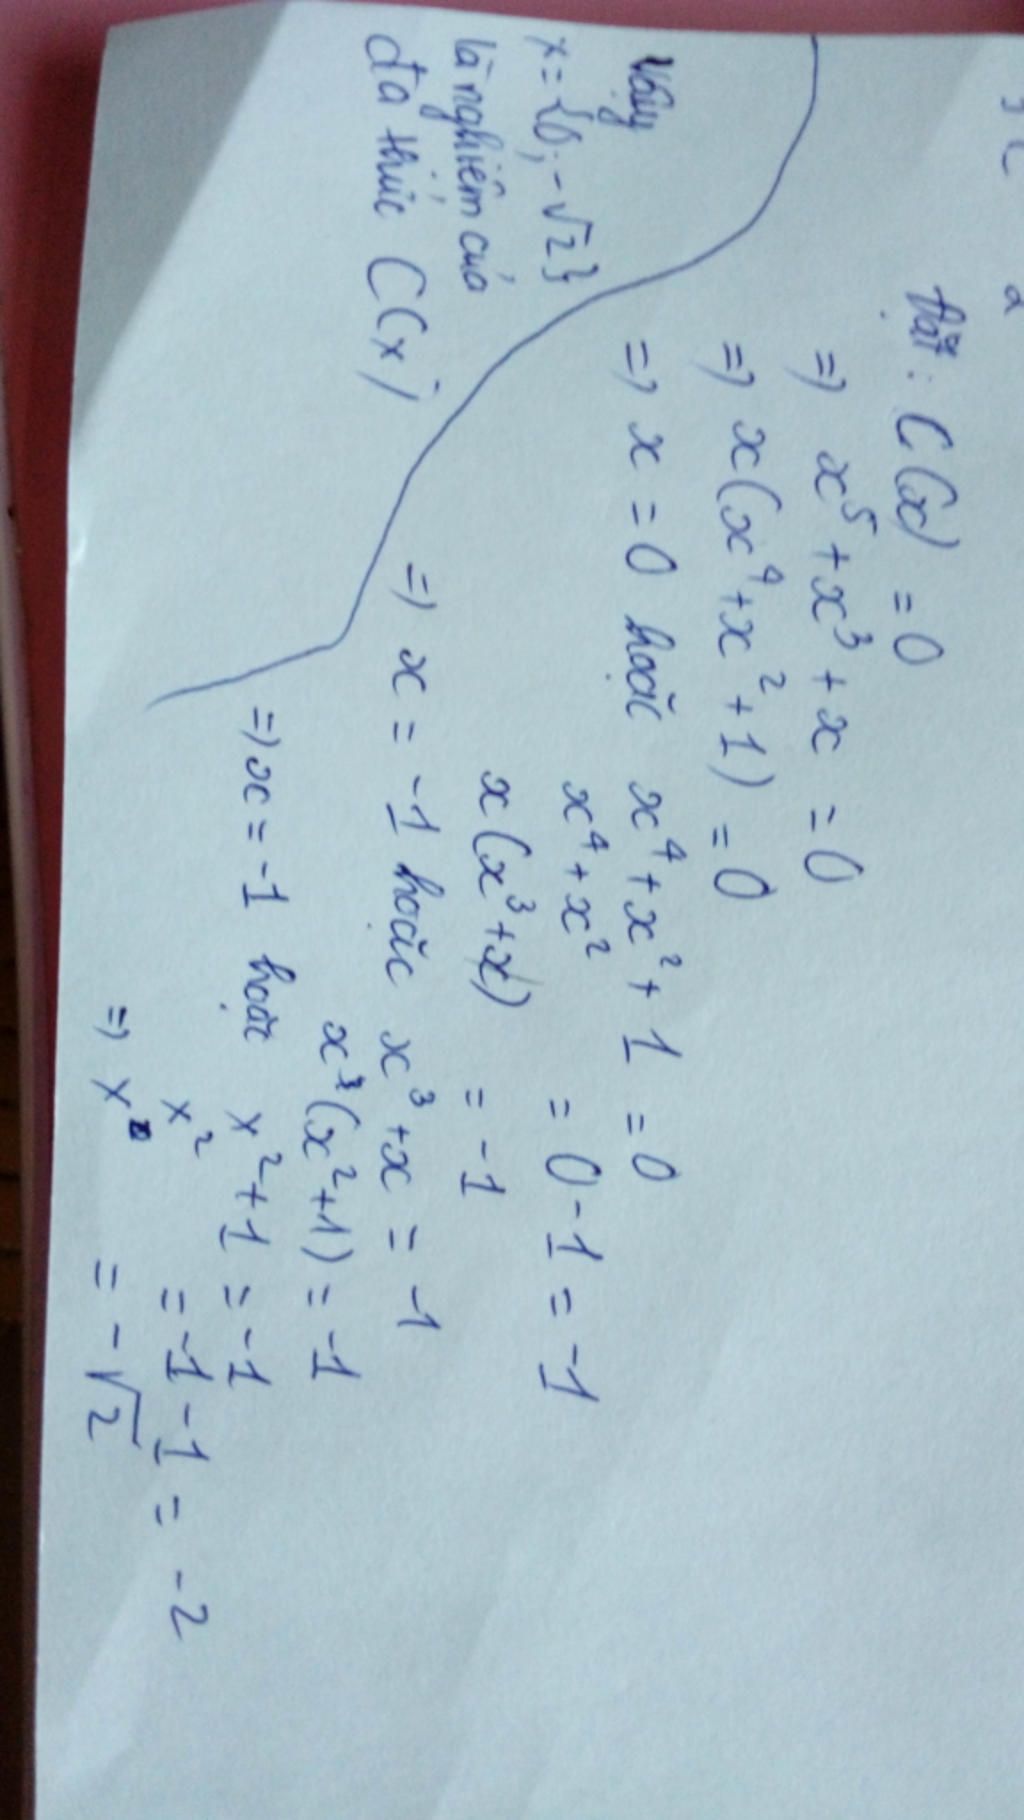 Đặt: C(x) = 0
=> x⁵ + x³ + x = 0
=> x(x⁴ + x² + 1) = 0
=> x = 0 hoặc x⁴ + x² + 1 = 0
x⁴ + x² = 0 - 1 = -1
x(x³ + x) = -1
=> x = -1 hoặc x³ + x = -1
x(x² + 1) = -1
=> x = -1 hoặc x² + 1 = -1
x² = -1 - 1 = -2
=> x = -√2
Vậy
x = {0; -√2}
là nghiệm của
đa thức C(x)